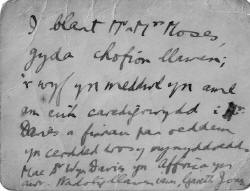 I blant Mr a Mrs Moses,
gyda chofion llawen;
'r wyf yn meddwl yn aml
am eich caredigrwydd i Mr
Davies a finnau pan oeddem
yn cerdded dros y mynyddoedd.
Mae Dr Wyn Davies yn Affrica yn
awr. Nadolig llawen iawn, Gareth Jones